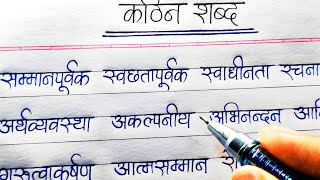 कठिन शब्द
सम्मानपूर्वक स्वछतापूर्वक स्वाधीनता रचना
अर्थव्यवस्था अकल्पनीय अभिनन्दन
गुरुत्वाकर्षण आत्मसम्मान